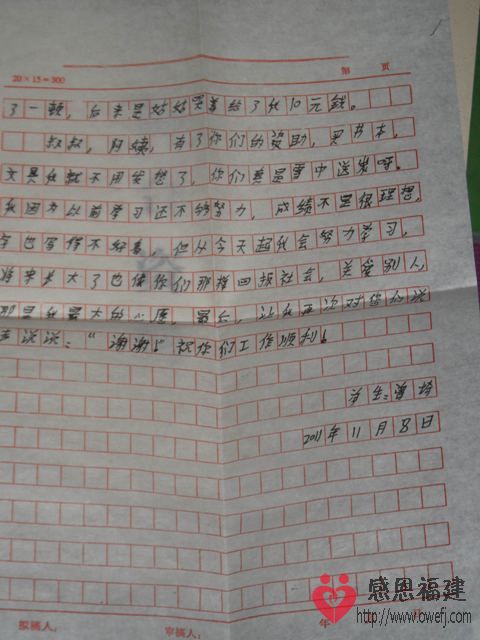 20×15=300 第 页
了一顿，后来是姑姑哭着给了我10元钱。
叔叔，阿姨，有了你们的资助，买书本，
文具我就不用发愁了，你们真是雪中送炭呀。
我因为以前学习还不够努力，成绩不是很理想，
字也写得不好看，但从今天起我会努力学习，
将来长大了也像你们那样回报社会，关爱别人，
那是我最大的心愿，最后，让我再次对您们说
声说说："谢谢！"祝你们工作顺利！
学生：
2011年11月8日
拟稿人： 审稿人： 年 月 日
感恩福建
http://www.bwefj.com